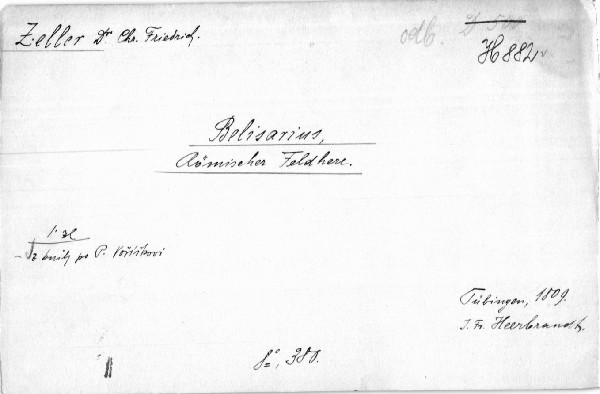 Zeller Dr Chr. Friedrich.
odb.
H 882
Belisarius,
Römischer Feldherr.
1. sl
P. Voříškovi
Tübingen, 1809.
J. Fr. Heerbrandt.
8°, 380.